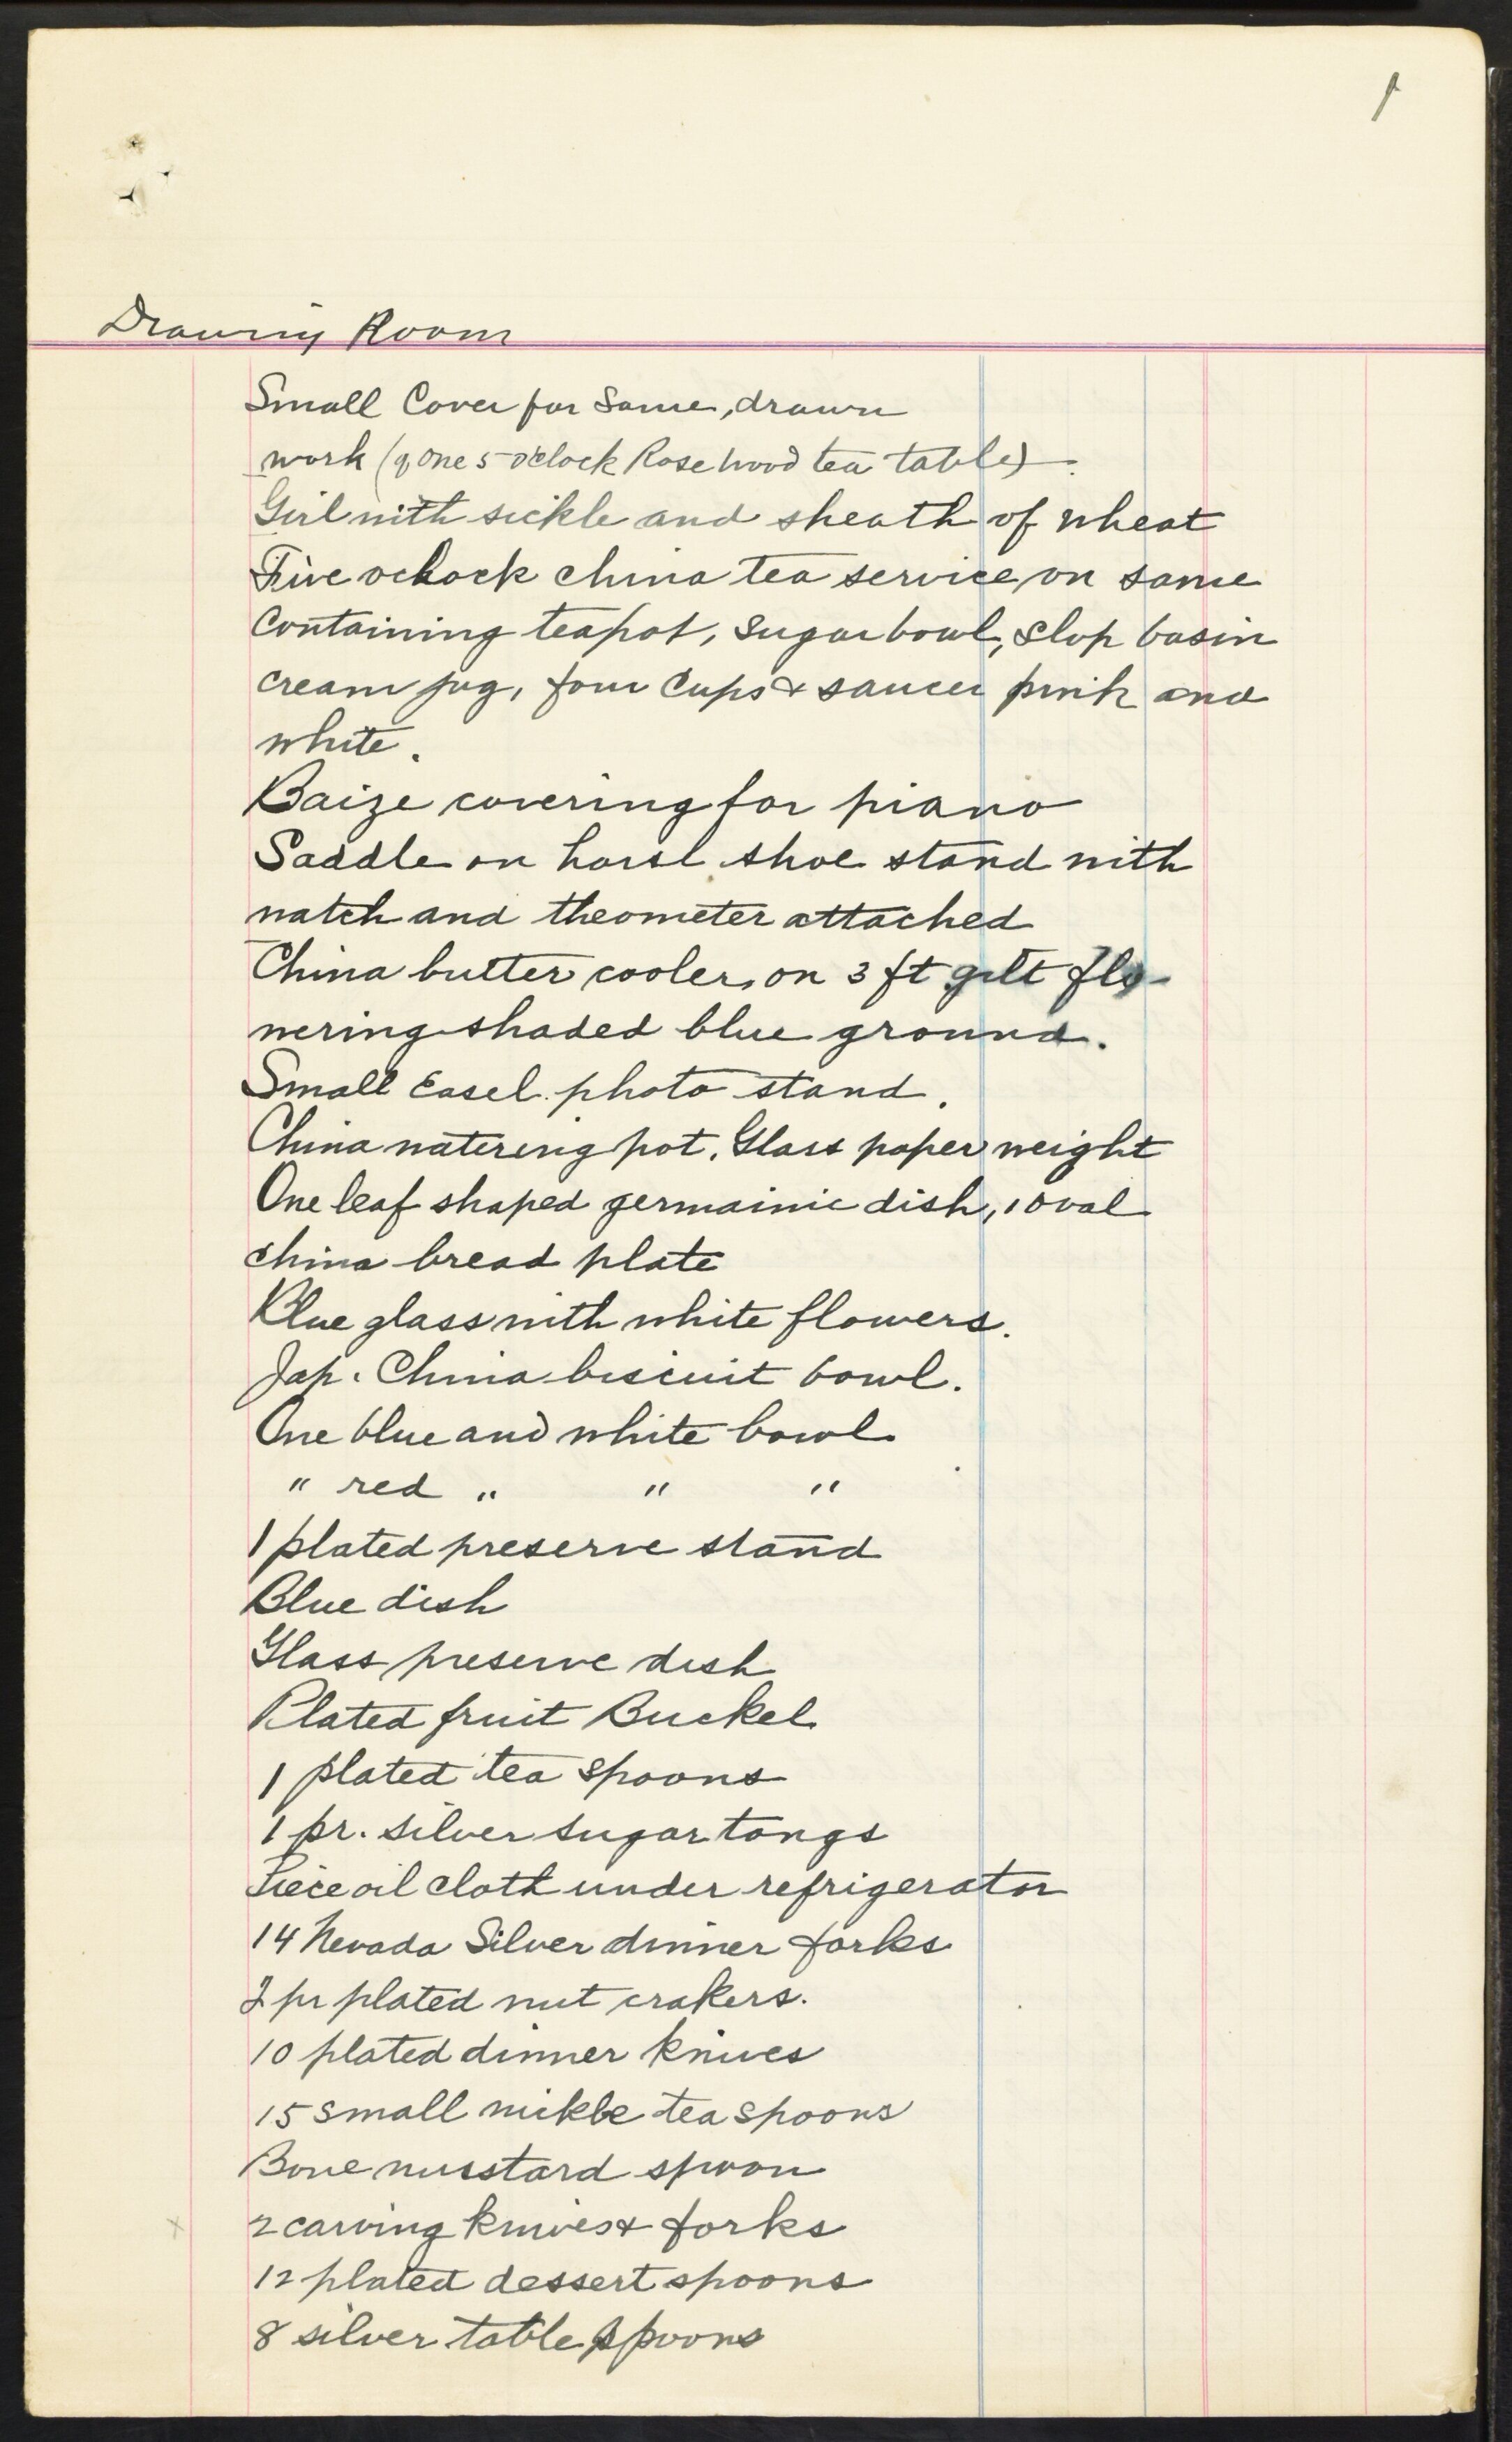 1
Drawing Room
Small Cover for Same, drawn
work (of one 5 o'clock Rosewood tea table).
Girl with sickle and sheath of wheat
Five oclock china tea service on same
Containing teapot, sugar bowl, slop basin
cream jug, four Cups & saucer pink and
white.
Baize covering for piano
Saddle on horse shoe stand with
watch and theometer attached
China butter cooler, on 3 ft gilt flo-
wering shaded blue ground.
Small Easel photo stand.
China watering pot. Glass paper weight
One leaf shaped germainic dish, 1 oval
china bread plate
Blue glass with white flowers.
Jap. China biscuit bowl.
One blue and white bowl
" red " " "
1 plated preserve stand
Blue dish
Glass preserve dish
Plated fruit Bucket
1 plated tea spoons
1 pr. silver sugar tongs
Piece oil cloth under refrigerator
14 Nevada Silver dinner forks
2 pr plated nut crakers.
10 plated dinner knives
15 small nickle tea spoons
Bone musstard spoon
x 2 carving knives & forks
12 plated dessert spoons
8 silver table spoons